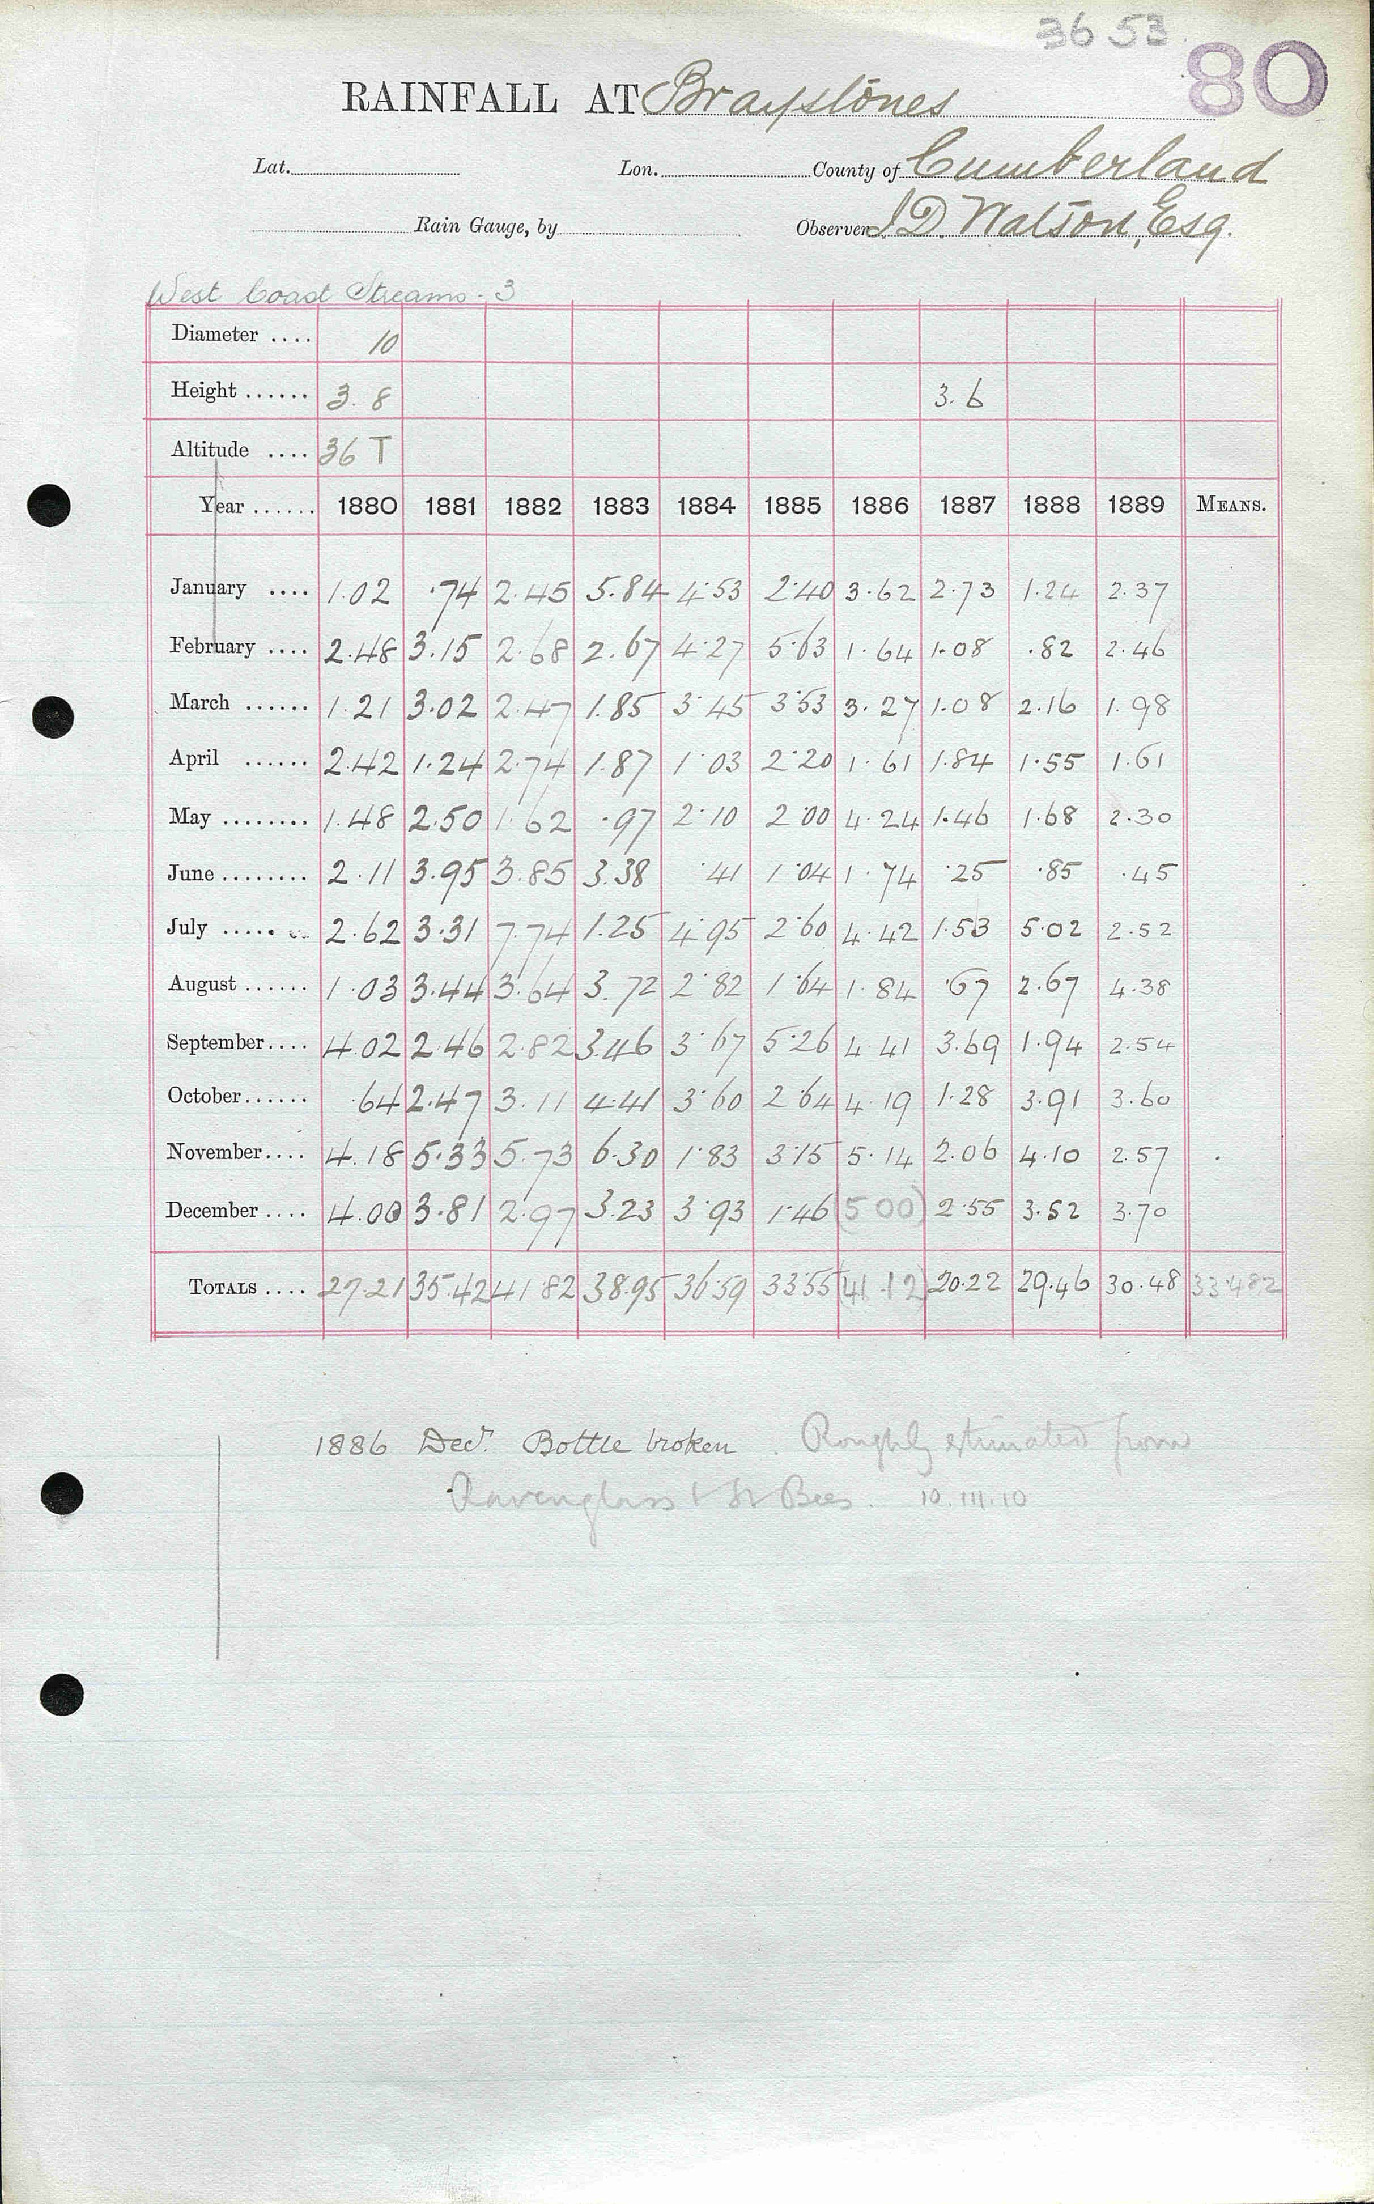 3653
80
RAINFALL AT Braystones
Lat. Lon. County of Cumberland
Rain Gauge, by Observer J D. Watson, Esq.
West Coast Streams - 3
Diameter .... 10
Height ...... 3. 8 3. 6
Altitude .... 36 T
Year ...... 1880 1881 1882 1883 1884 1885 1886 1887 1888 1889 MEANS.
January .... 1.02 .74 2.45 5.84 4.53 2.40 3.62 2.73 1.24 2.37
February .... 2.48 3.15 2.68 2.67 4.27 5.63 1.64 1.08 .82 2.46
March ...... 1.21 3.02 2.47 1.85 3.45 3.53 3.27 1.08 2.16 1.98
April ...... 2.42 1.24 2.74 1.87 1.03 2.20 1.61 1.84 1.55 1.61
May ........ 1.48 2.50 1.62 .97 2.10 2.00 4.24 1.46 1.68 2.30
June ........ 2.11 3.95 3.85 3.38 .41 1.04 1.74 .25 .85 .45
July ..... 2.62 3.31 7.74 1.25 4.95 2.60 4.42 1.53 5.02 2.52
August ...... 1.03 3.44 3.64 3.72 2.82 1.64 1.84 .67 2.67 4.38
September.... 4.02 2.46 2.82 3.46 3.67 5.26 4.41 3.69 1.94 2.54
October...... .64 2.47 3.11 4.41 3.60 2.64 4.19 1.28 3.91 3.60
November.... 4.18 5.33 5.73 6.30 1.83 3.15 5.14 2.06 4.10 2.57
December .... 4.00 3.81 2.97 3.23 3.93 1.46 (5.00) 2.55 3.52 3.70
TOTALS .... 27.21 35.42 41.82 38.95 36.59 33.55 (41.12) 20.22 29.46 30.48 33.482
1886 Decr. Bottle broken. Roughly estimated from
Ravenglass & St Bees. 10.III.10